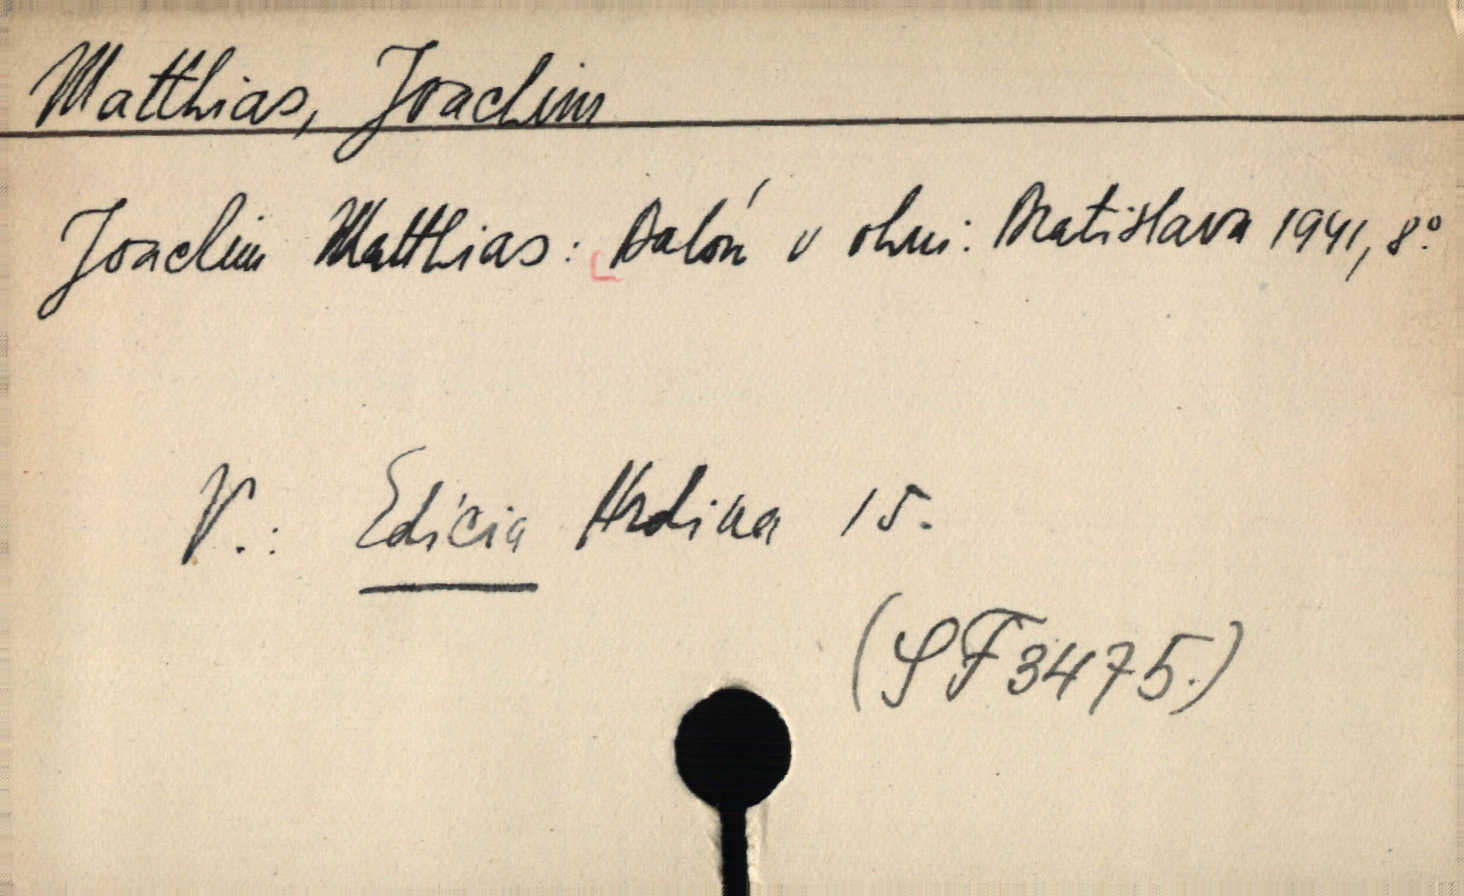 Matthias, Joachim
Joachim Matthias: Balón v ohni. Bratislava 1941, 8°
V.: Edícia Hrdina 15.
(SF3475.)